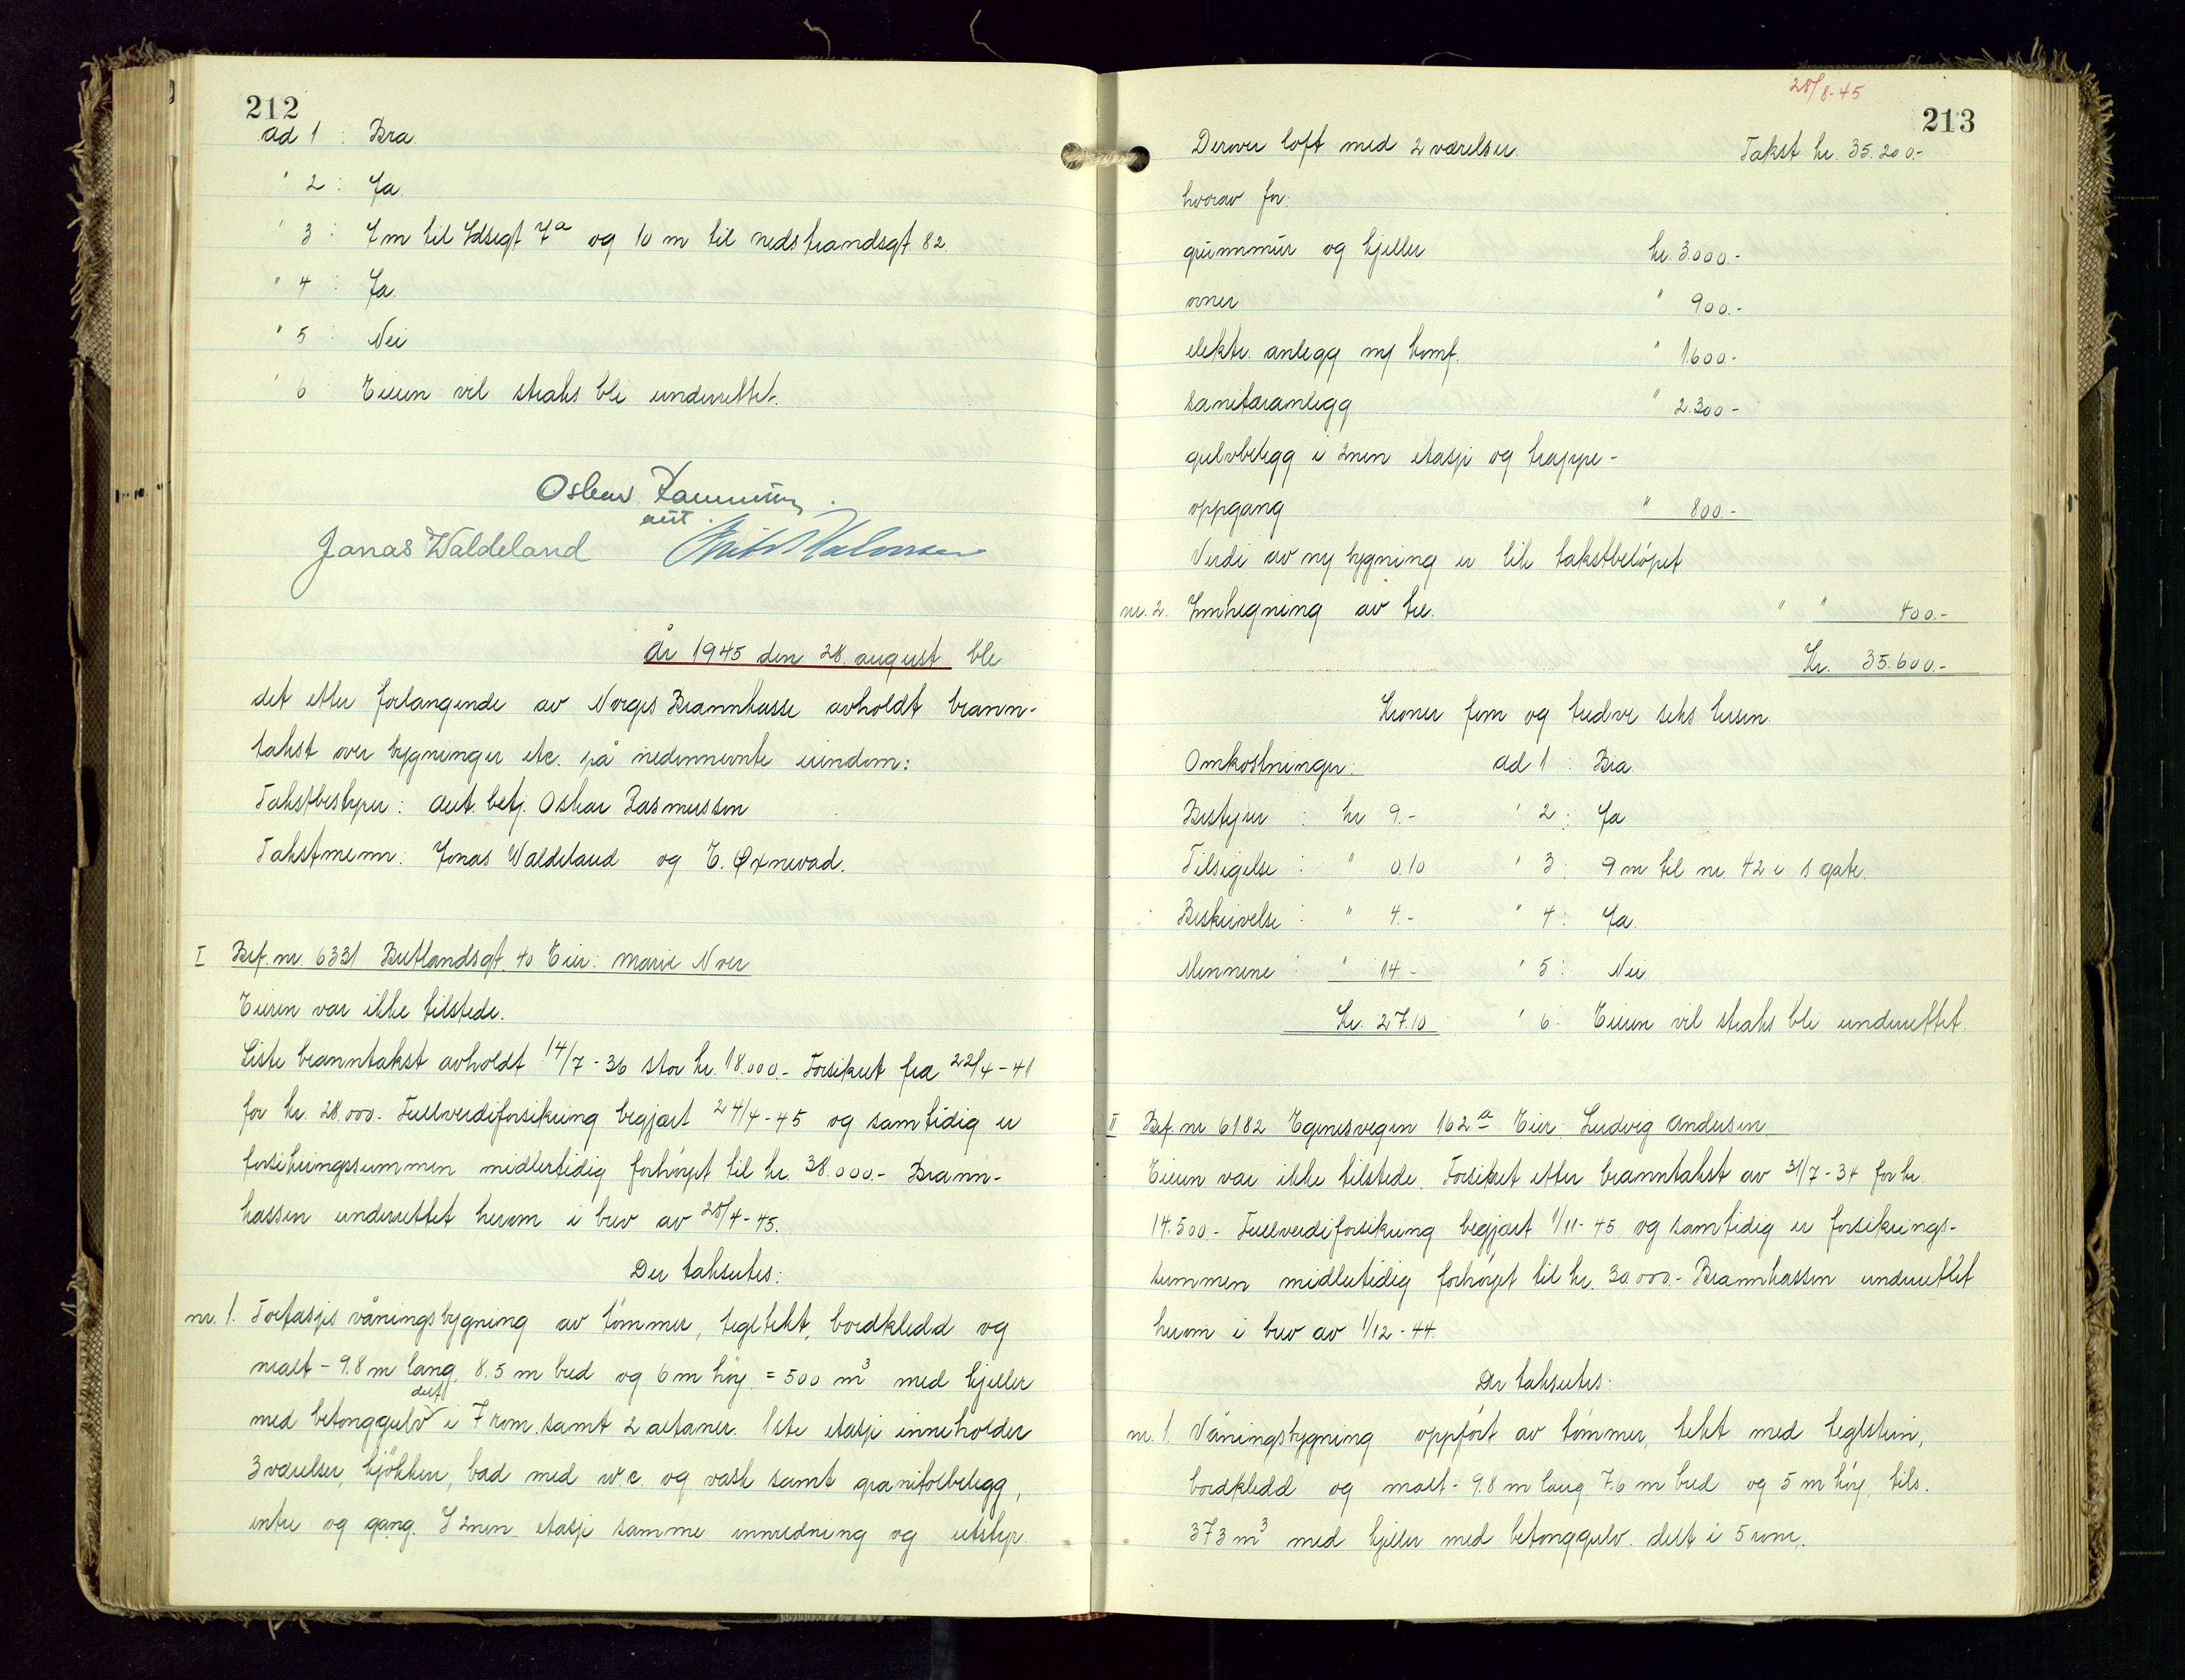 212
ad 1 : Bra
" 2 : Ja.
" 3 : 7 m til Idsegt 7a og 10 m til nedstrandsgt. 82.
" 4 : Ja.
" 5 : Nei
" 6 : Eieren vil straks bli underrettet.
Oskar Rasmussen
aut.
Jonas Waldeland
År 1945 den 28. august ble
det etter forlangende av Norges Brannkasse avholdt brann-
takst over bygninger etc. på nedennevnte eiendom:
Takstbestyrer: aut. betj. Oskar Rasmussen
Takstmenn: Jonas Waldeland og E. Øxnevad.
I Brf. nr. 6331 Buttlandsgt. 40 Eier: Marie Nver
Eieren var ikke tilstede.
Siste branntakst avholdt 14/7-36 stor kr. 18.000.- Forsikret fra 22/4-41
for kr. 28.000.- Fullverdiforsikring begjært 24/4-45 og samtidig er
forsikringssummen midlertidig forhöyet til kr. 38.000.- Brann-
kassen underrettet herom i brev av 25/4-45.
Der takseres:
nr. 1. Toetasjes våningsbygning av tömmer, teglteket, bordkledd og
malt - 9.8 m lang, 8.5 m bred og 6 m höy = 500 m3 med kjeller
med betonggulv delt i 7 rom samt 2 altaner. 1ste etasje inneholder
3 værelser, kjökken, bad med w.c. og vask samt granitolbelegg,
entre og gang. I 2nen etasje samme innredning og utstyr.
28/8-45
213
Derover loft med 2 værelser. Takst kr. 35.200.-
hvorav for:
grunnmur og kjeller kr. 3.000.-
ovner " 900.-
elektr. anlegg m/ komf. " 1600.-
sanitæranlegg " 2.300.-
gulvbelegg i 2nen etasje og trappe-
oppgang " 800.-
Verdi av ny bygning er lik takstbelöpet
nr. 2. Innhegning av tre. " " 400.-
Kr. 35.600.-
Kroner fem og tredve seks hrsen.
Omkostninger: ad 1 : Bra
Bestyrer : kr 9.- " 2 : Ja
Tilsigelse : " 0.10 " 3 : 9 m til nr. 42 i s gate.
Beskrivelse : " 4.- " 4 : Ja.
Mennene : " 14.- " 5 : Nei.
Kr. 27.10 " 6 : Eieren vil straks bli underrettet
II Brf. nr 6182 Egenesvegen 162a Eier: Ludvig Andersen
Eieren var ikke tilstede. Forsikret etter branntakst av 31/7-34 for kr.
14.500.- Fullverdiforsikring begjært 1/11-45 og samtidig er forsikrings-
summen midlertidig forhöyet til kr. 30.000.- Brannkassen underrettet
herom i brev av 1/12-44.
Der takseres:
nr. 1. Våningsbygning oppfört av tömmer, tekt med teglstein,
bordkledd og malt - 9.8 m lang 7.6 m bred og 5 m höy, tils.
373 m3 med kjeller med betonggulv. delt i 5 rom,